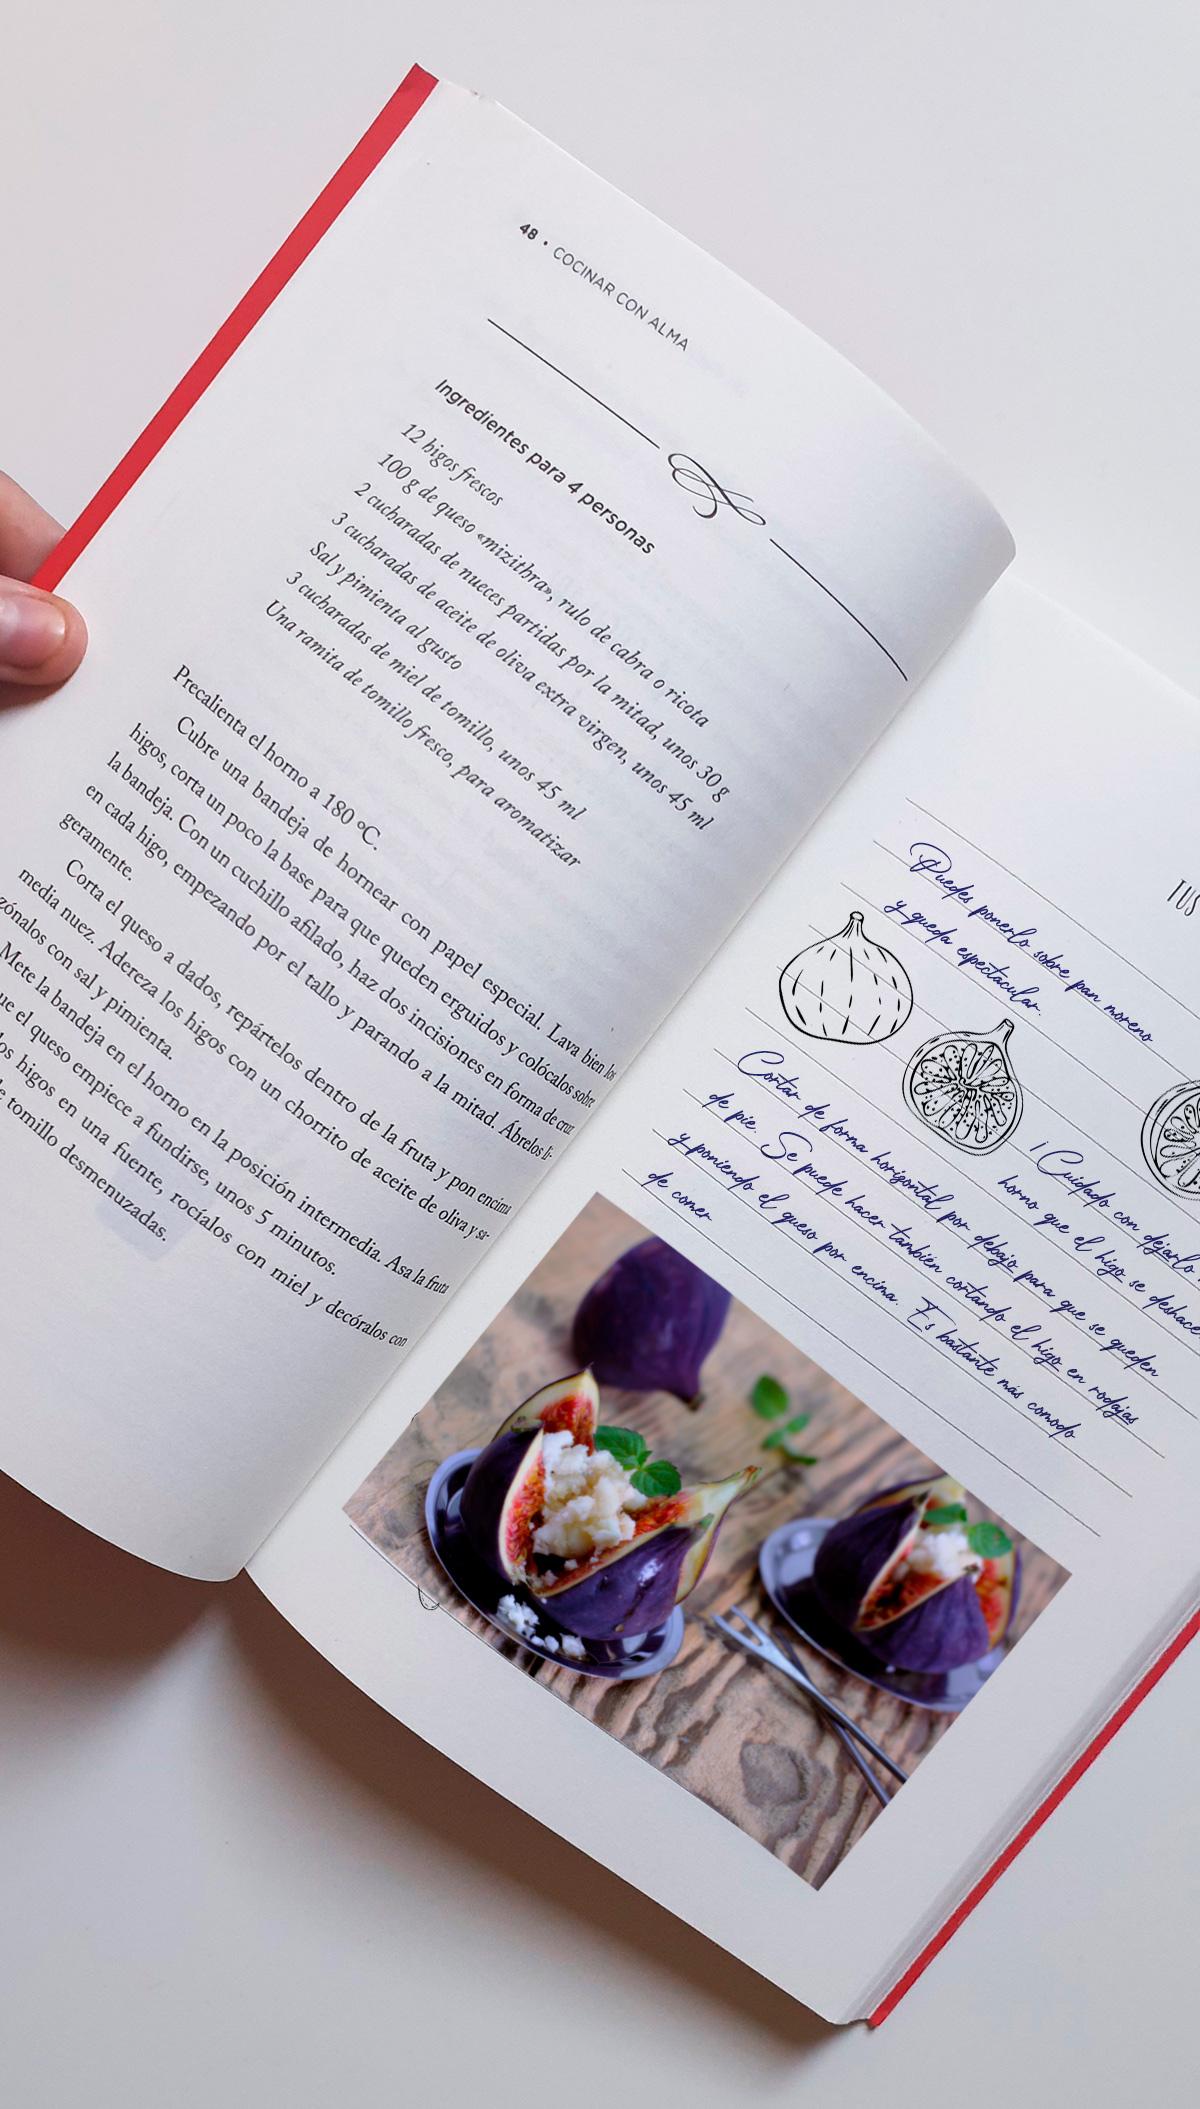 48 • COCINAR CON ALMA
Ingredientes para 4 personas
12 higos frescos
100 g de queso «mizithra», rulo de cabra o ricota
2 cucharadas de nueces partidas por la mitad, unos 30 g
3 cucharadas de aceite de oliva extra virgen, unos 45 ml
Sal y pimienta al gusto
3 cucharadas de miel de tomillo, unos 45 ml
Una ramita de tomillo fresco, para aromatizar
Precalienta el horno a 180 ºC.
Cubre una bandeja de hornear con papel especial. Lava bien los
higos, corta un poco la base para que queden erguidos y colócalos sobre
la bandeja. Con un cuchillo afilado, haz dos incisiones en forma de cruz
en cada higo, empezando por el tallo y parando a la mitad. Ábrelos li-
geramente.
Corta el queso a dados, repártelos dentro de la fruta y pon encima
media nuez. Adereza los higos con un chorrito de aceite de oliva y sa-
zónalos con sal y pimienta.
Mete la bandeja en el horno en la posición intermedia. Asa la fruta
ue el queso empiece a fundirse, unos 5 minutos.
los higos en una fuente, rocíalos con miel y decóralos con
e tomillo desmenuzadas.
TUS
Puedes ponerlo sobre pan moreno
y queda espectacular.
¡Cuidado con dejarlo
horno que el higo se deshace
Cortar de forma horizontal por debajo para que se queden
de pie. Se puede hacer también cortando el higo en rodajas
y poniendo el queso por encina. Es bastante más comodo
de comer